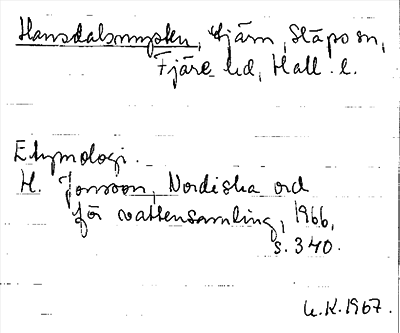 Hansdalsmysten, tjärn, Släps sn,
Fjäre hd, Hall. l.
Etymologi.
H. Jonsson, Nordiska ord
för vattensamling, 1966,
s. 340.
U.K. 1967.